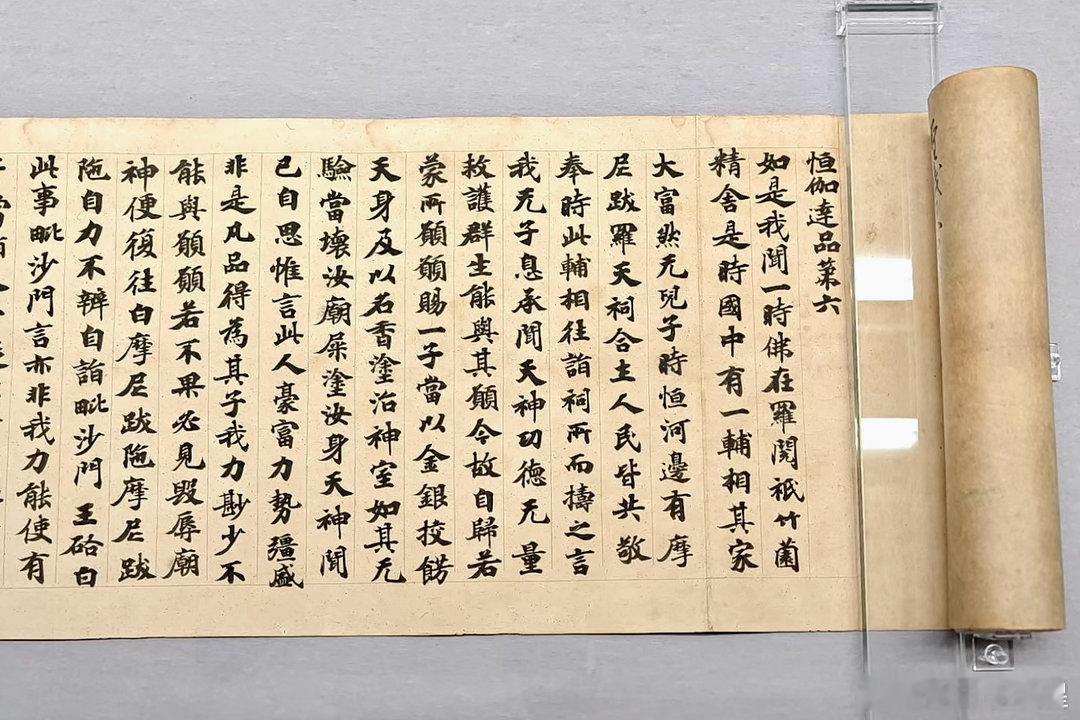 恒伽達品苐六
如是我聞一時佛在羅閱祇竹薗
精舍是時國中有一輔相其家
大富然无兒子時恒河邊有摩
尼跋羅天祠合土人民皆共敬
奉時此輔相往詣祠所而擣之言
我无子息承聞天神功德无量
救護群生能與其願今故自歸若
蒙所願願賜一子當以金銀挍餝
天身及以名香塗治神室如其无
驗當壞汝廟屎塗汝身天神聞
已自思惟言此人豪富力勢彊盛
非是凡品得為其子我力尠少不
能與願願若不果必見毀辱廟
神便復往白摩尼跋陁摩尼跋
陁自力不辦自詣毗沙門王硌白
此事毗沙門言亦非我力能使有